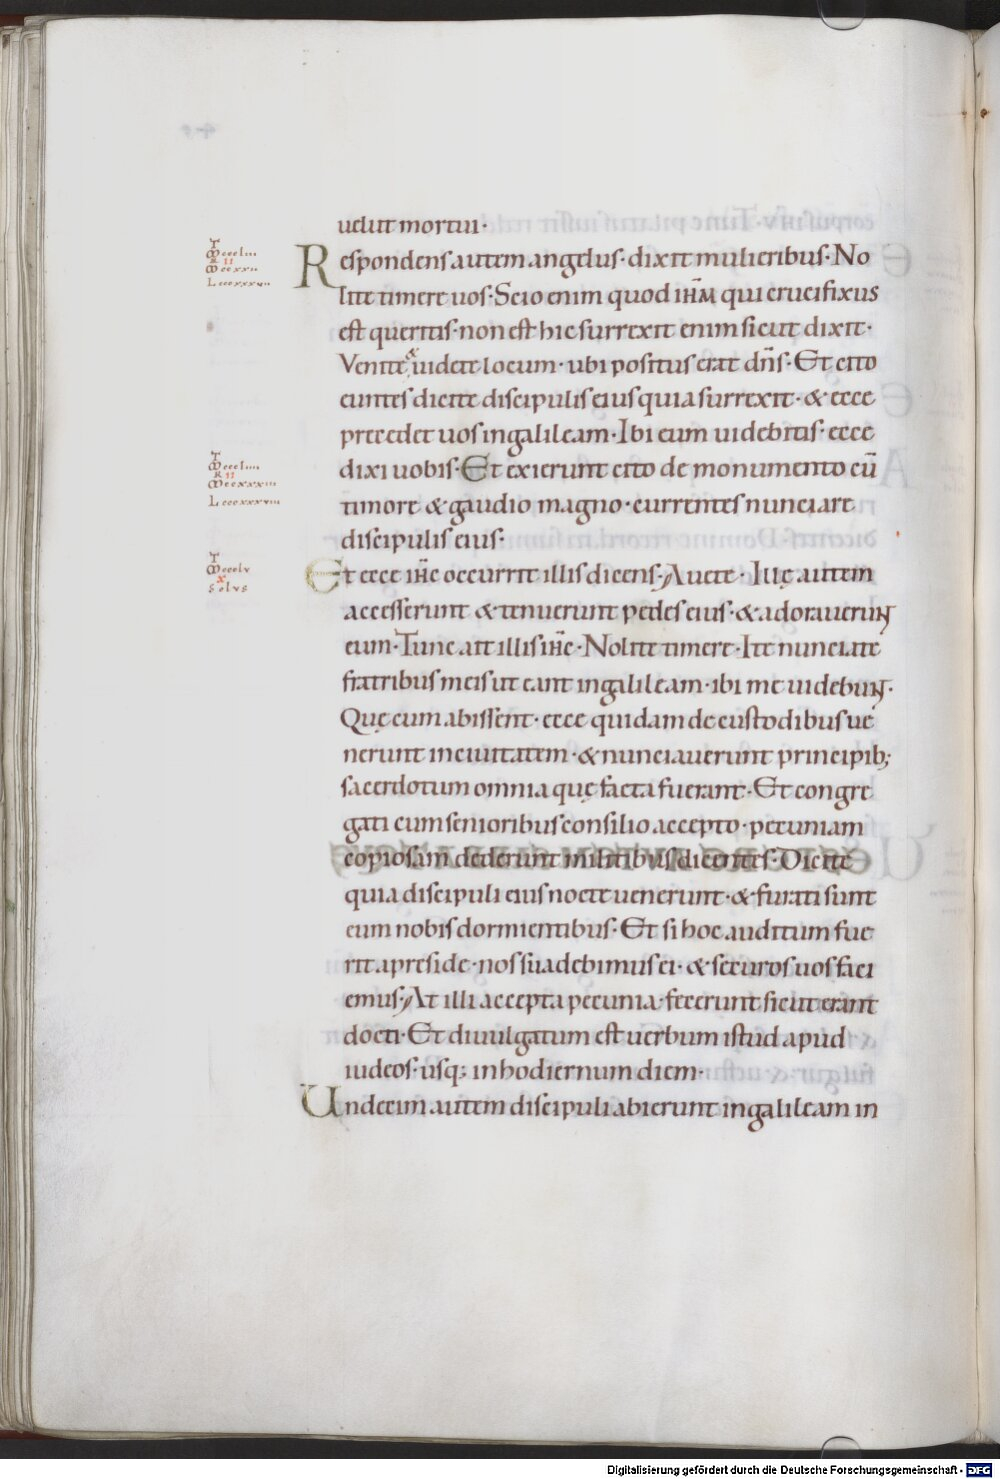 uelut mortui·
Respondens autem angelus· dixit mulieribus· No
lite timere uos· Scio enim quod ih̄m qui crucifixus
est queritis· non est hic surrexit enim sicut dixit·
Venite & uidete locum· ubi positus erat dn̄s· Et cito
euntes dicite discipulis eius quia surrexit· & ecce
precedet uos in galileam· Ibi eum uidebitis· ecce
dixi uobis· Et exierunt cito de monumento cū
timore & gaudio magno· currentes nunciare
discipulis eius·
Et ecce ih̄c occurrit illis dicens· Auete· Illę autem
accesserunt & tenuerunt pedes eius· & adorauerunt
eum· Tunc ait illis ih̄c· Nolite timere· Ite nunciate
fratribus meis ut eant in galileam· ibi me uidebunt·
Quę cum abissent· ecce quidam de custodibus ue
nerunt in ciuitatem· & nunciauerunt principib;
sacerdotum omnia quę facta fuerant· Et congre
gati cum senioribus consilio accepto· pecuniam
copiosam dederunt militibus dicentes· Dicite
quia discipuli eius nocte uenerunt· & furati sunt
eum nobis dormientibus· Et si hoc auditum fue
rit a preside· nos suadebimus ei· & securos uos faci
emus· At illi accepta pecunia· fecerunt sicut erant
docti· Et diuulgatum est uerbum istud apud
iudeos· usq; in hodiernum diem·
Undecim autem discipuli abierunt in galileam in
Digitalisierung gefördert durch die Deutsche Forschungsgemeinschaft - DFG